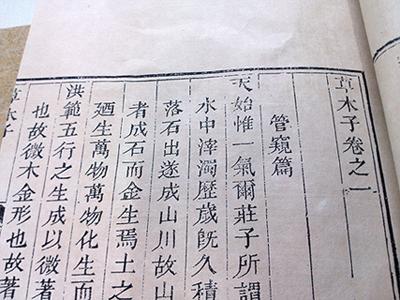 草木子卷之一
管窺篇
天始惟一氣爾莊子所謂
水中滓濁歷歲旣久積
落石出遂成山川故山
者成石而金生焉土之
廼生萬物萬物化生而
洪範五行之生成以微著
也故微木金形也故著
草木子